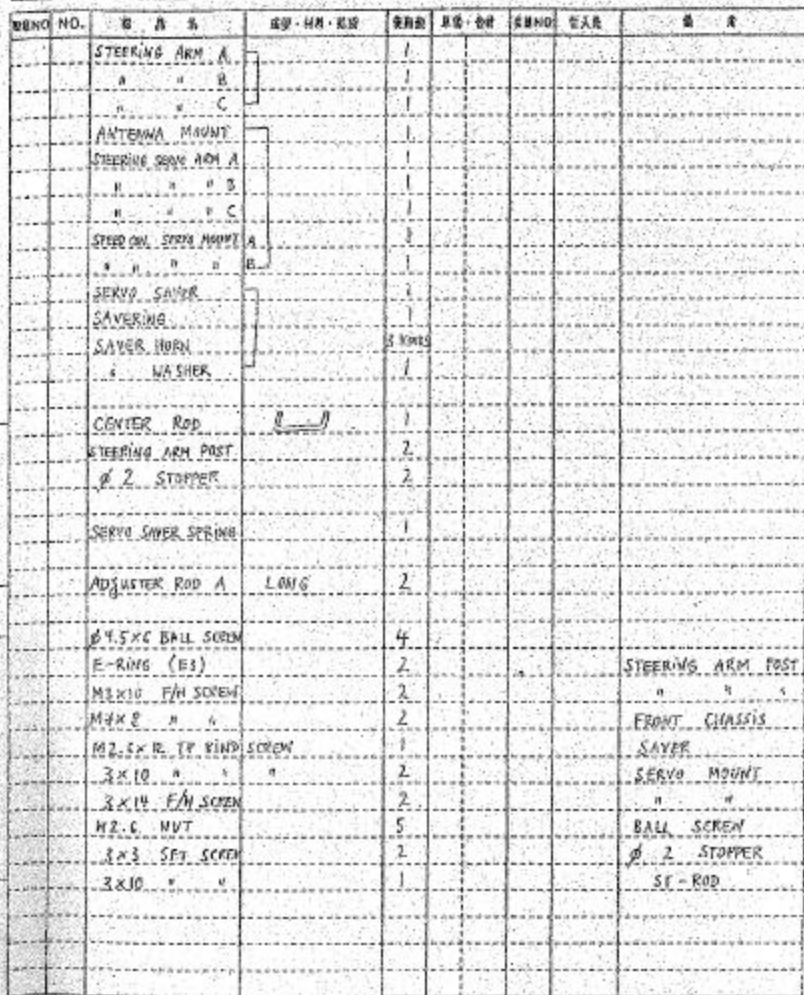 NO.
STEERING ARM A 1
" " B 1
" " C 1
ANTENNA MOUNT 1
STEERING SERVO ARM A 1
" " " B 1
" " " C 1
SPEED CON. SERVO MOUNT A 1
" " " " B 1
SERVO SAVER 1
SAVERING 1
SAVER HORN 3 KINDS
" WASHER 1
CENTER ROD 1
STEERING ARM POST 2
φ 2 STOPPER 2
SERVO SAVER SPRING 1
ADJUSTER ROD A LONG 2
BALL SCREW 4
E-RING (E3) 2 STEERING ARM POST
M3×10 F/H SCREW 2 " " "
M4×8 " " 2 FRONT CHASSIS
M2.6×12 TP BIND SCREW 1 SAVER
3×10 " " " 2 SERVO MOUNT
3×14 F/H SCREW 2 " "
M2.6 NUT 5 BALL SCREW
3×3 SET SCREW 2 φ 2 STOPPER
3×10 " " 1 ROD